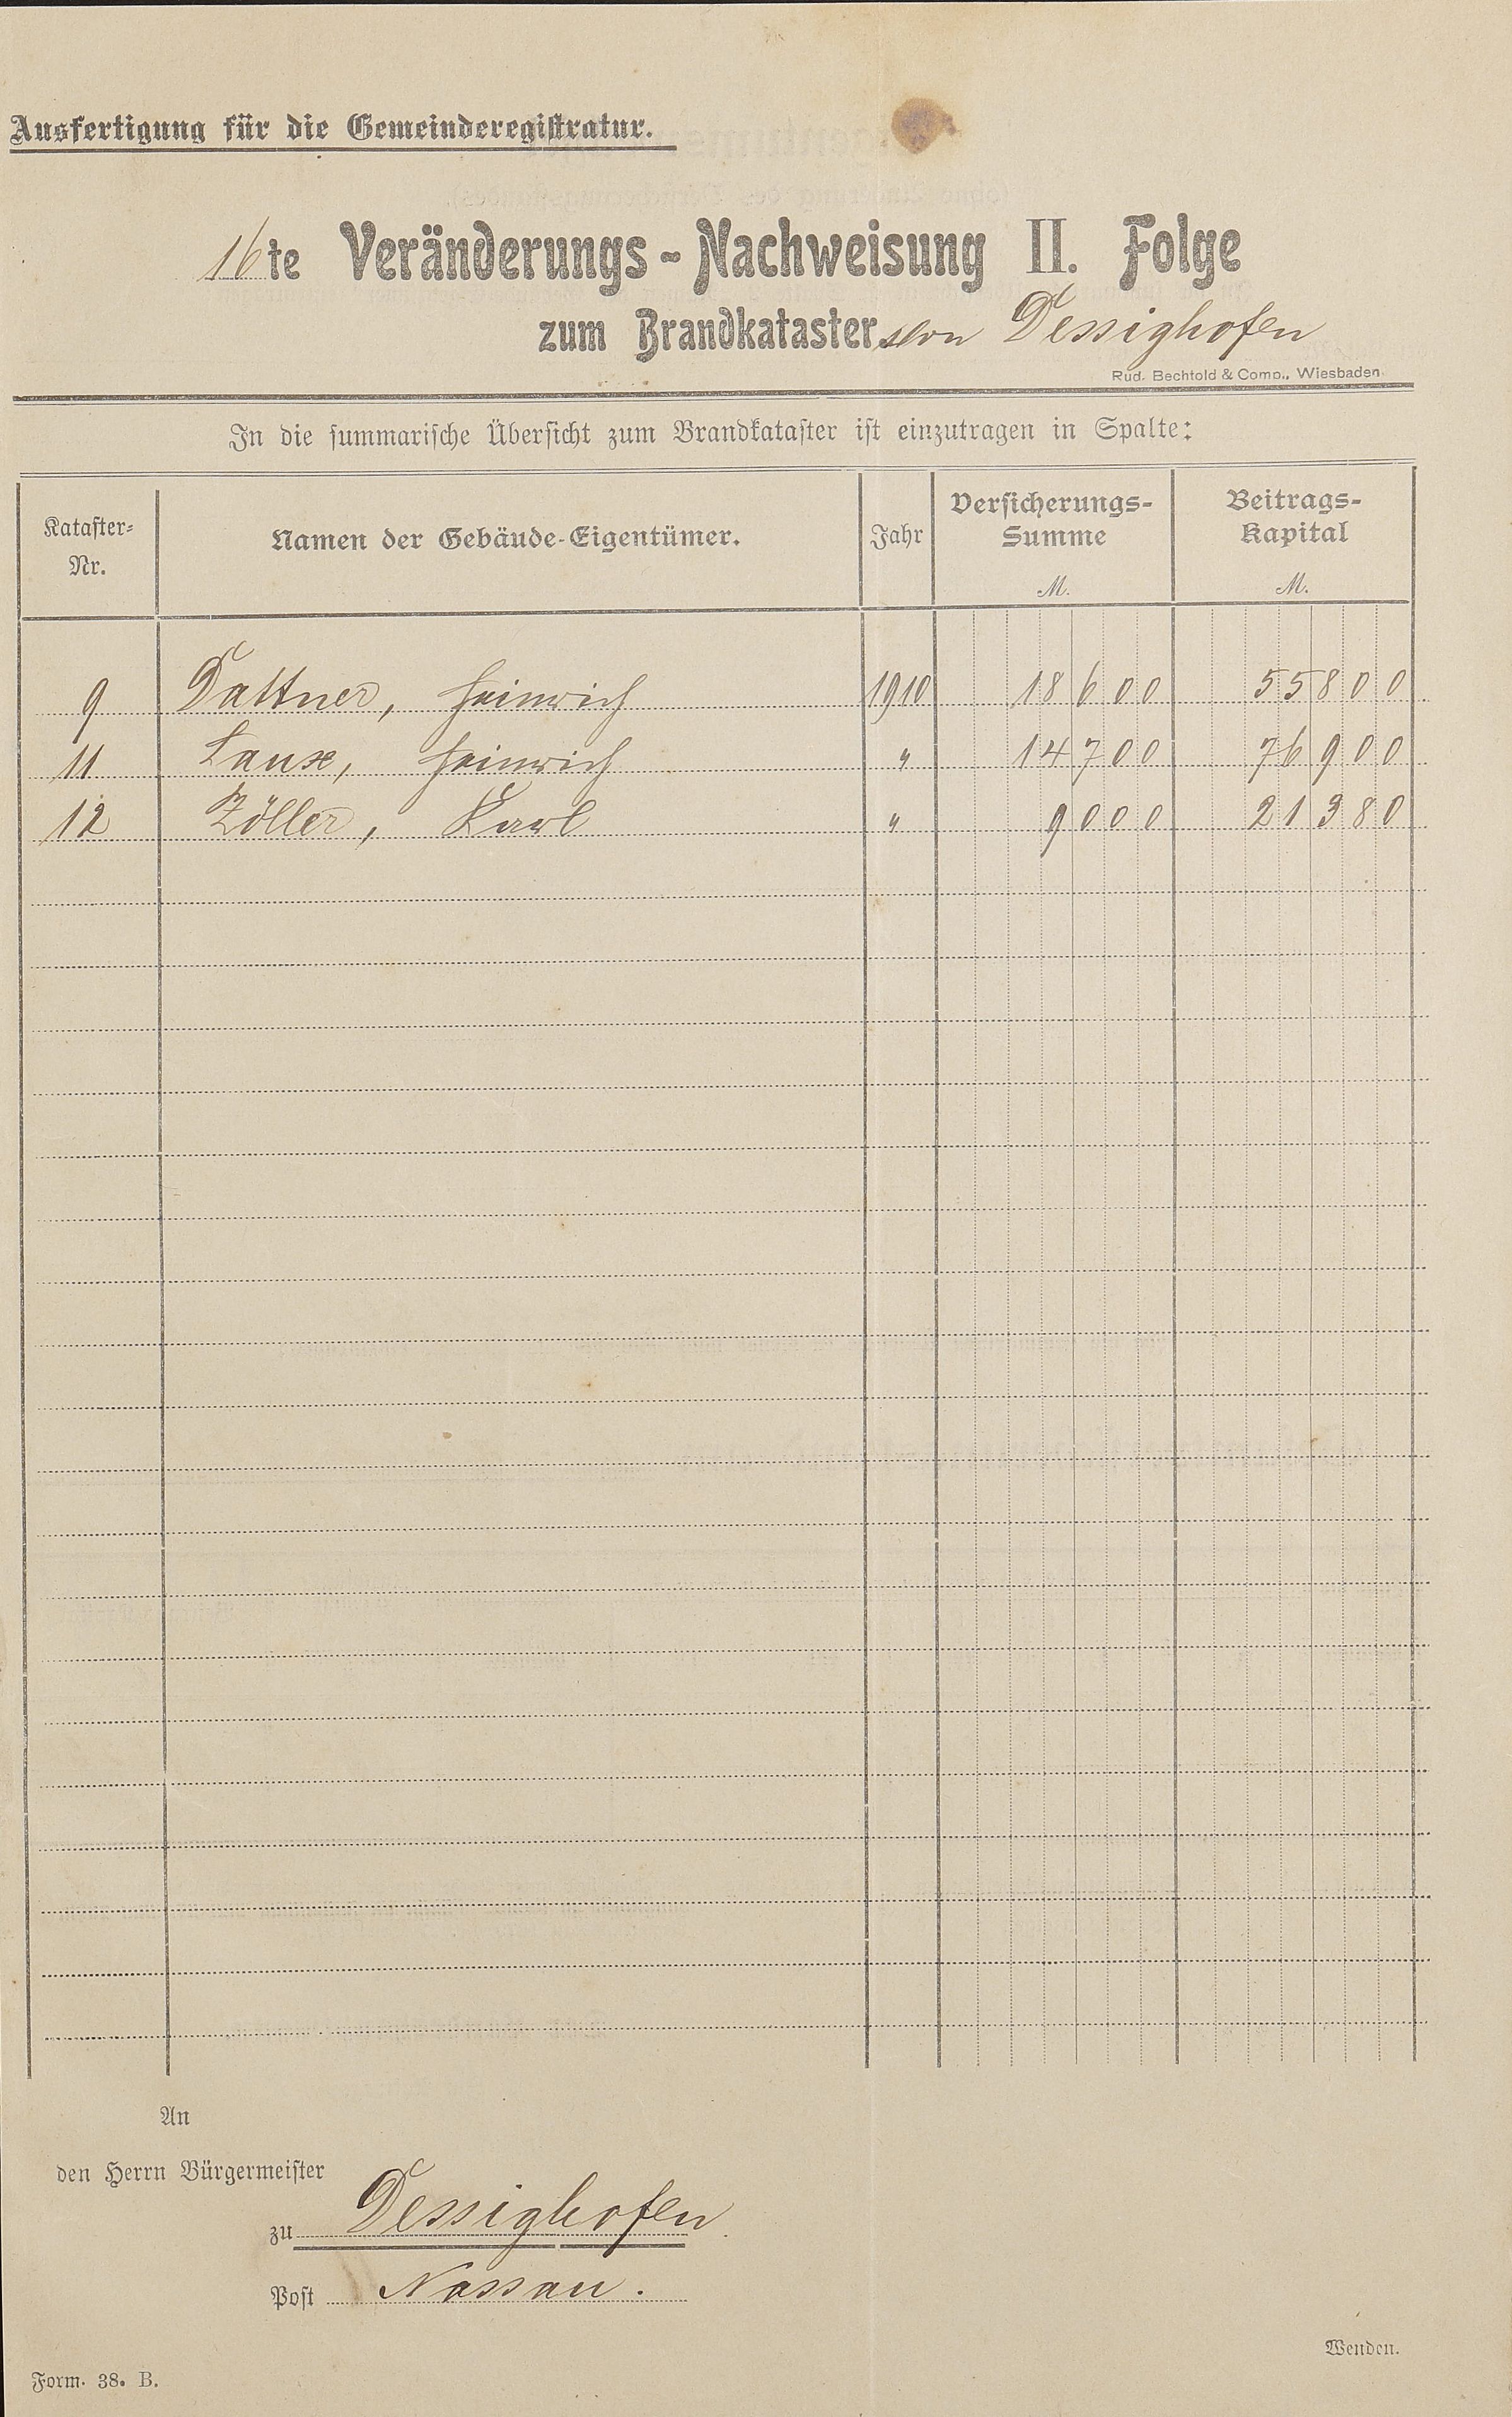 Ausfertigung für die Gemeinderegistratur.
16te Veränderungs-Nachweisung II. Folge
zum Brandkataster von Dessighofen
Rud. Bechtold & Comp., Wiesbaden.
In die summarische Übersicht zum Brandkataster ist einzutragen in Spalte:
Kataster-Nr. Namen der Gebäude-Eigentümer. Jahr Versicherungs-Summe M. Beitrags-Kapital M.
9 Dattner, Heinrich 1910 18600 55800
11 Laux, Heinrich " 14700 76900
12 Zöller, Karl " 9000 21380
An
den Herrn Bürgermeister
zu Dessighofen
Post Nassau.
Wenden.
Form. 38. B.